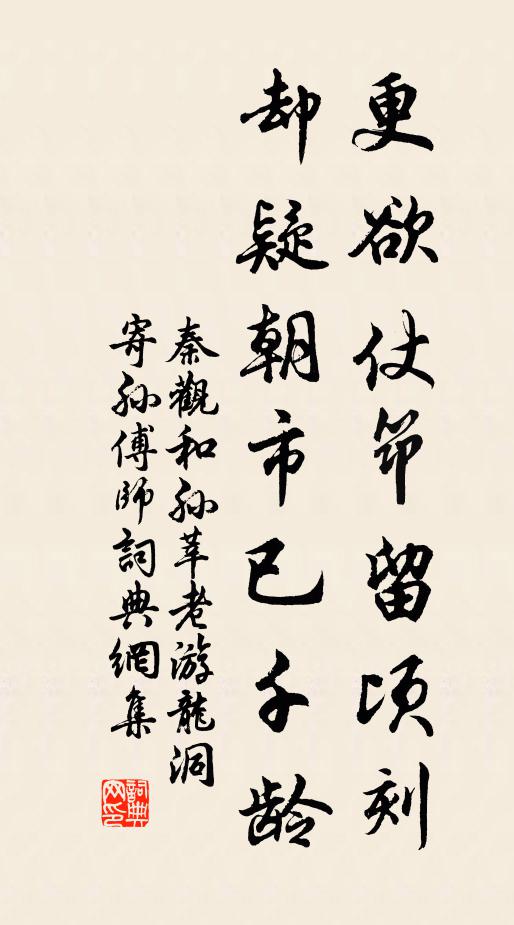 更欲仗節留頃刻
却疑朝市已千龄
秦觀和孙莘老游龍洞
寄孙傅師詞典網集
詞典
网印